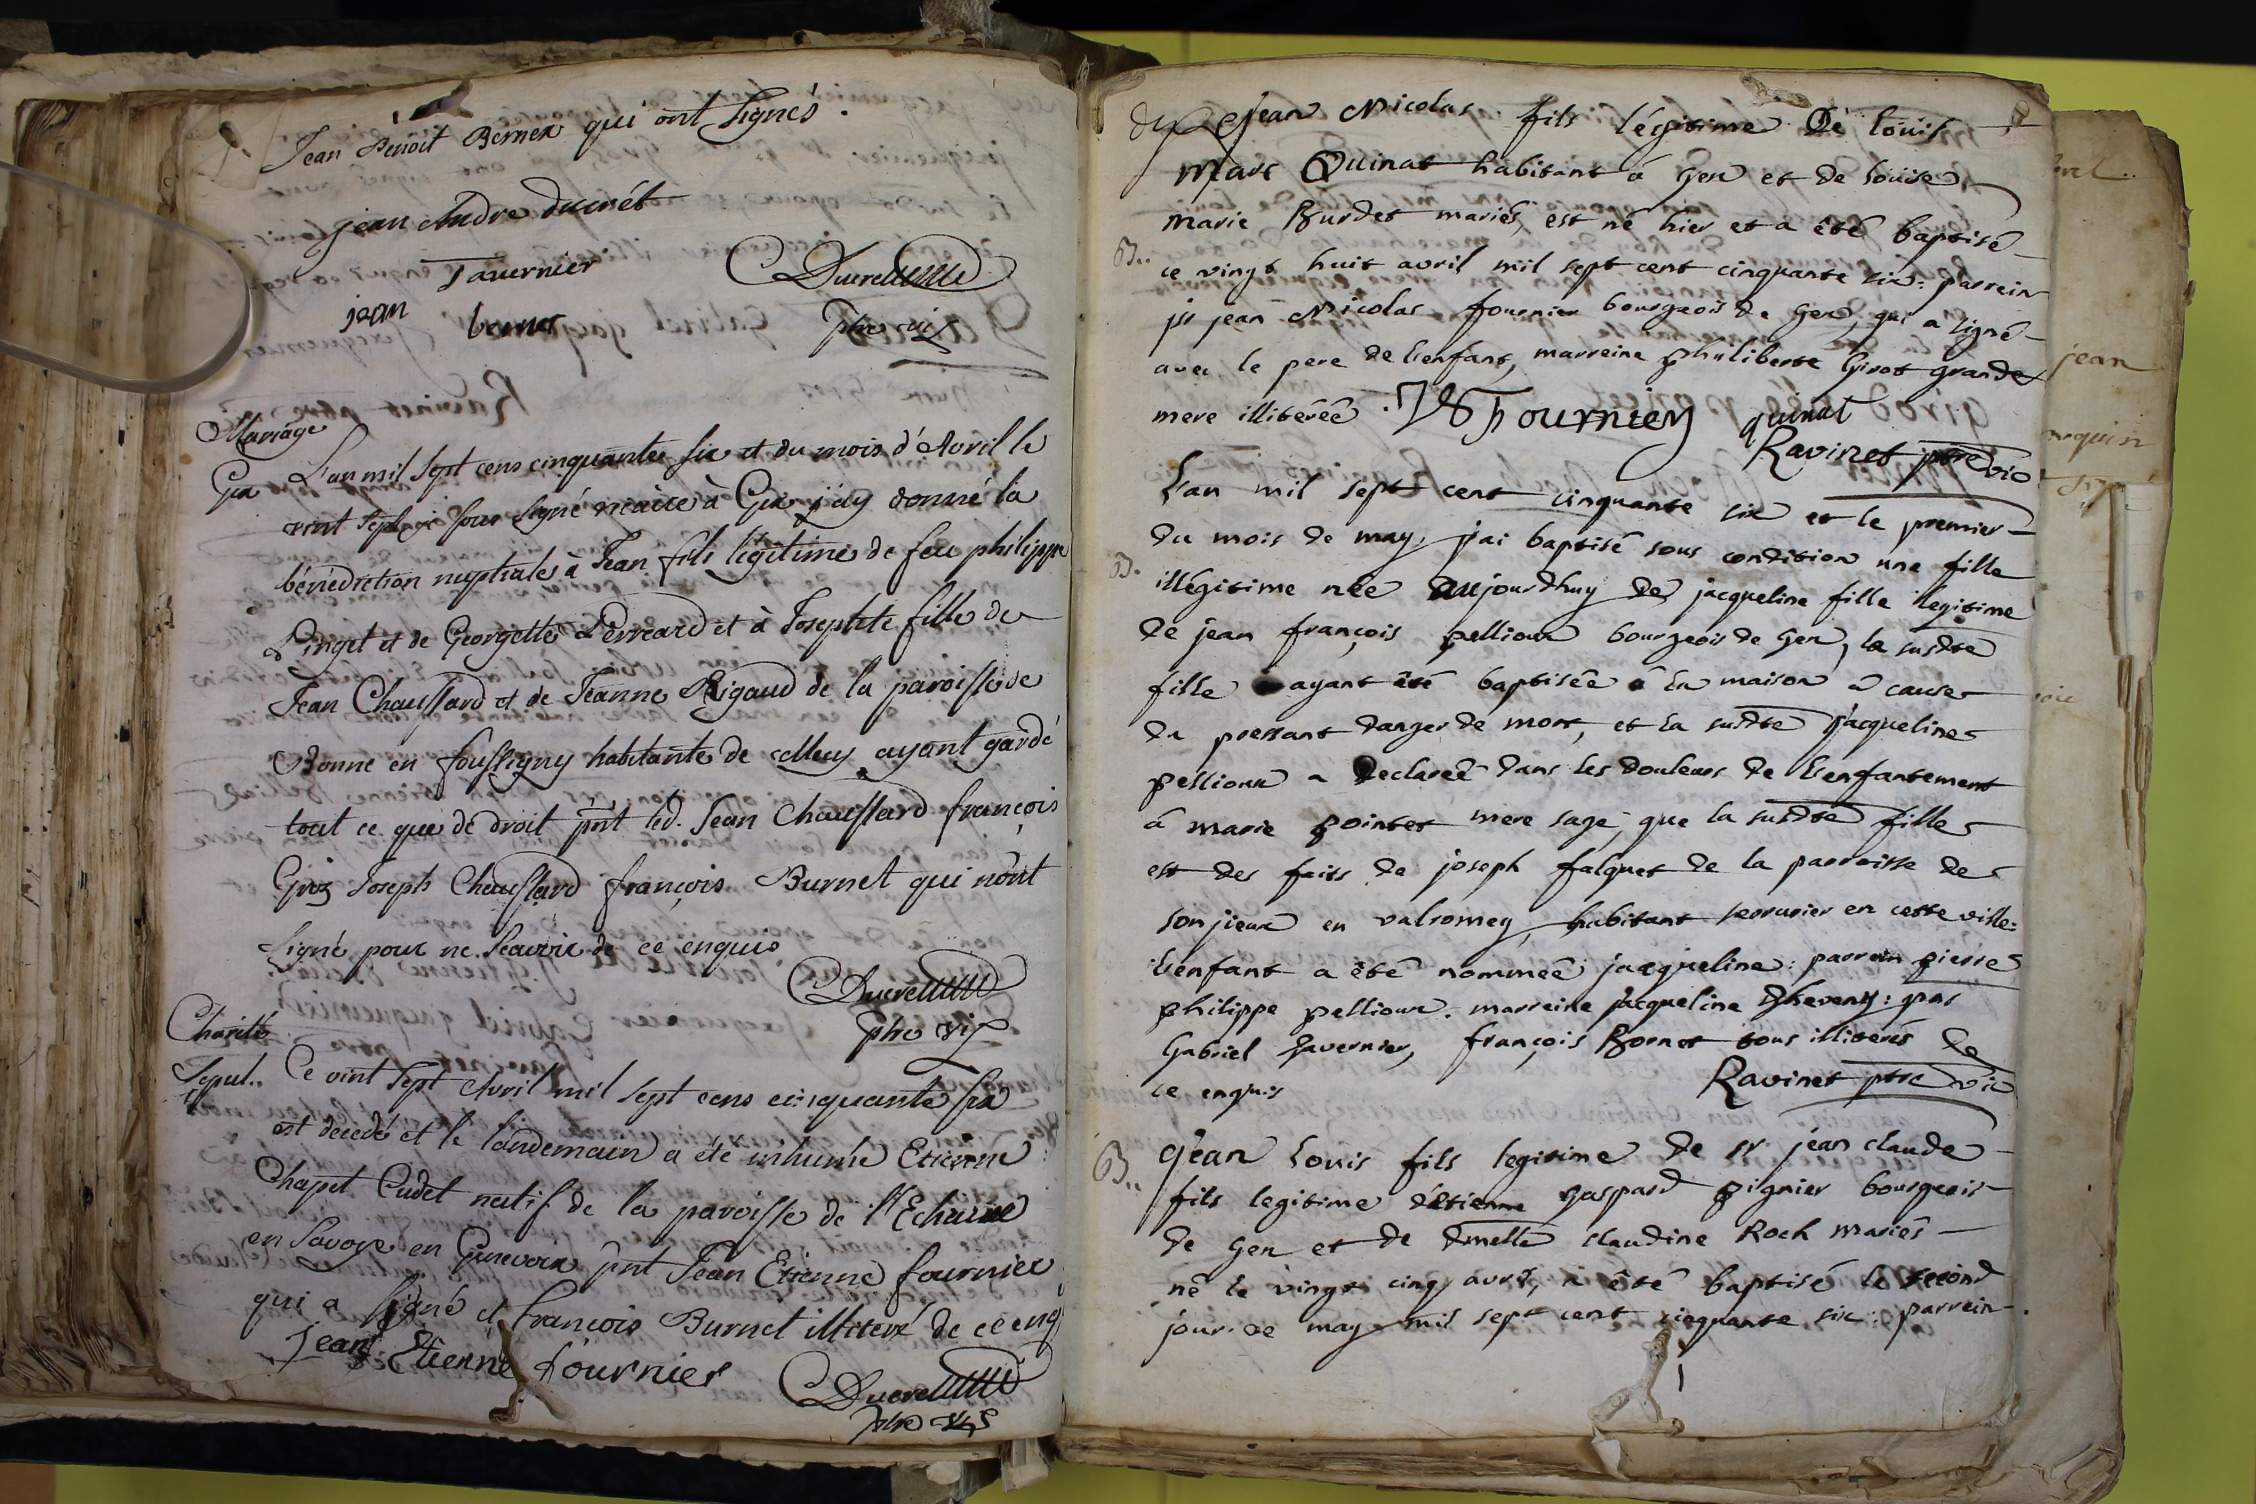 Jean Benoit Bernex qui ont signés.
jean Andre ducrét
Tavernier
jean bernex
Ducret
ptre vic
Mariage
Gex
L'an mil sept cens cinquante six et du mois d'Avril le
vint sept je sous signé vicaire à Gex j'ay donné la
bénédiction nuptiale à Jean fils légitime de feu philippe
Linget et de Georgette Perreard et à Josephte fille de
Jean Chaussard et de Jeanne Rigaud de la paroisse de
Bonne en foussigny habitante de celleuy ayant gardé
tout ce que de droit pnt led. Jean Chaussard françois
Groz Joseph Chaussard françois Burnet qui nont
signé pour ne scavoir de ce enquis
Ducret
ptre vic
Charité
Sepul..
Ce vint sept Avril mil sept cens cinquante six
est decedé et le landemain a été inhumé Etienne
Chapet Cudet natif de la paroisse de l'Echaux
en Savoye en Genevoix pnt Jean Etienne fournier
qui a signé et francois Burnet illiteré de ce enq
Jean Etienne fournier
Ducret
ptre vic
Jean Nicolas fils légitime De louis
Marc Quinat habitant á Gex et de Louise
marie Burdet mariés, est né hier et a été baptisé
B..
ce vingt huit avril mil sept cent cinquante six: parrein
sr jean Nicolas fournier bourgeois de Gex, qui a signé
avec le pere de l'enfant, marreine philiberte Girot grande
mere illiterée. JN Fournier quinat
Ravinet ptre vic
L'an mil sept cent cinquante six et le premier
du mois de may, j'ai baptisé sous condition une fille
B.
illégitime née aujourdhuy de jacqueline fille legitime
de jean françois pellioux bourgeois de Gex, la susdte
fille ayant été baptisée á la maison a cause
du pressant danger de mort, et la susdte jacqueline
pellioux a Declareé dans les douleurs de l'enfantement
á marie pointet mere sage, que la susdte fille
est des faits de joseph falquet de la parroisse de
sonjieux en valromey, habitant serrurier en cette ville:
l'enfant a été nommeé jacqueline: parrein pierre
philippe pellioux. marreine jacqueline Theveny: pns
Gabriel Tavernier, françois Bornet tous illiterés de
ce enquis
Ravinet ptre vic
B..
Jean Louis fils legitime de sr jean claude
fils legitime d'étienne gaspard pignier bourgeois
de Gex et de dmelle claudine Roch mariés
né le vingt cinq avril, a été baptisé le second
jour de may mil sept cent cinquante six: parrein
jean